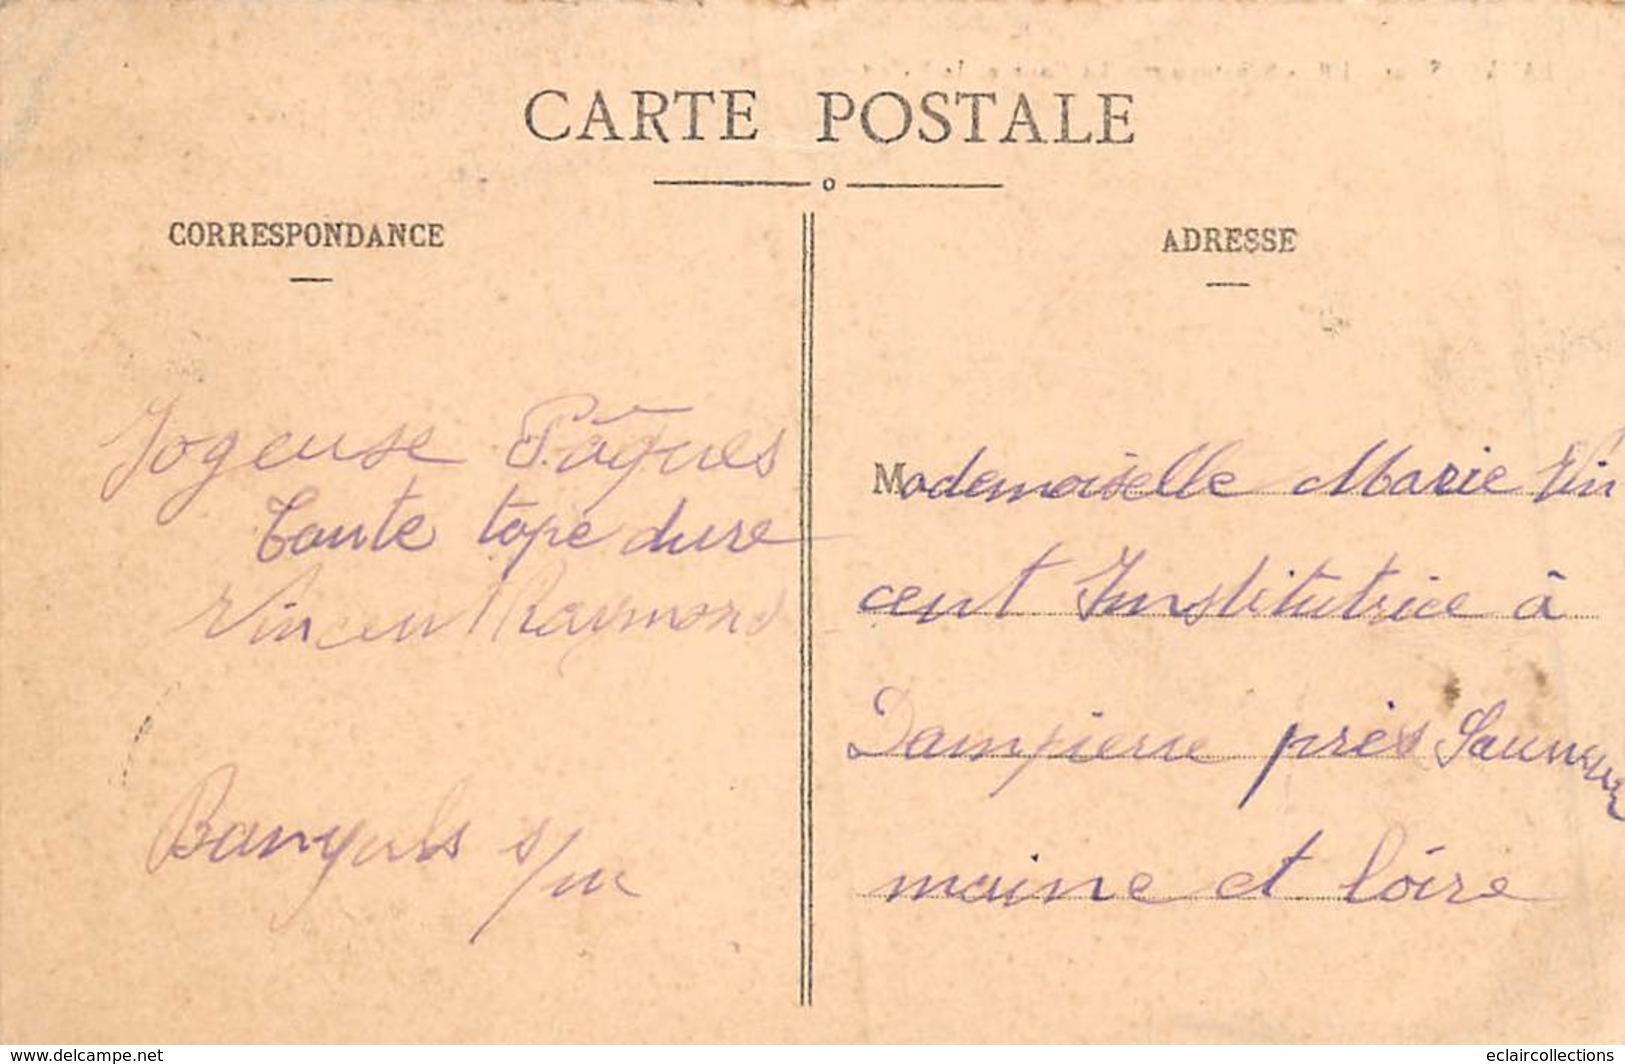 CARTE POSTALE
CORRESPONDANCE
Joyeuse Pâques
Tante tape dure
Vincent Raymond
Banyuls s/m
ADRESSE
Mademoiselle Marie Vin
cent Institutrice à
Dampierre près Saumur
maine et loire
www.delcampe.net
eclaircollections